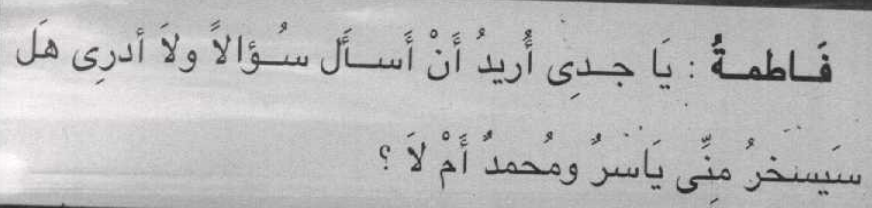 فَاطمـةُ : يَا جـدِى أُريدُ أَنْ أَسـأَل سُـؤالاً ولاَ أدرِى هَل
سَيسخرُ مِنِّى يَاسرُ ومُحمدٌ أَمْ لاَ ؟